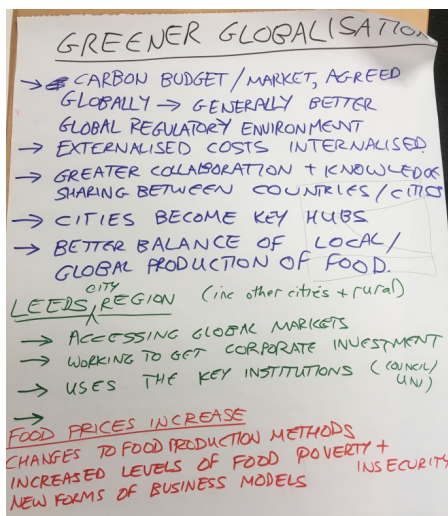 GREENER GLOBALISATION
→ CARBON BUDGET/MARKET, AGREED
GLOBALLY → GENERALLY BETTER
GLOBAL REGULATORY ENVIRONMENT
→ EXTERNALISED COSTS INTERNALISED.
→ GREATER COLLABORATION + KNOWLEDGE
SHARING BETWEEN COUNTRIES/CITIES
→ CITIES BECOME KEY HUBS.
→ BETTER BALANCE OF LOCAL/
GLOBAL PRODUCTION OF FOOD.
LEEDS CITY REGION (inc other cities + rural)
→ ACCESSING GLOBAL MARKETS
→ WORKING TO GET CORPORATE INVESTMENT
→ USES THE KEY INSTITUTIONS (COUNCIL/
UNI)
→
FOOD PRICES INCREASE
CHANGES TO FOOD PRODUCTION METHODS
INCREASED LEVELS OF FOOD POVERTY + INSECURITY
NEW FORMS OF BUSINESS MODELS